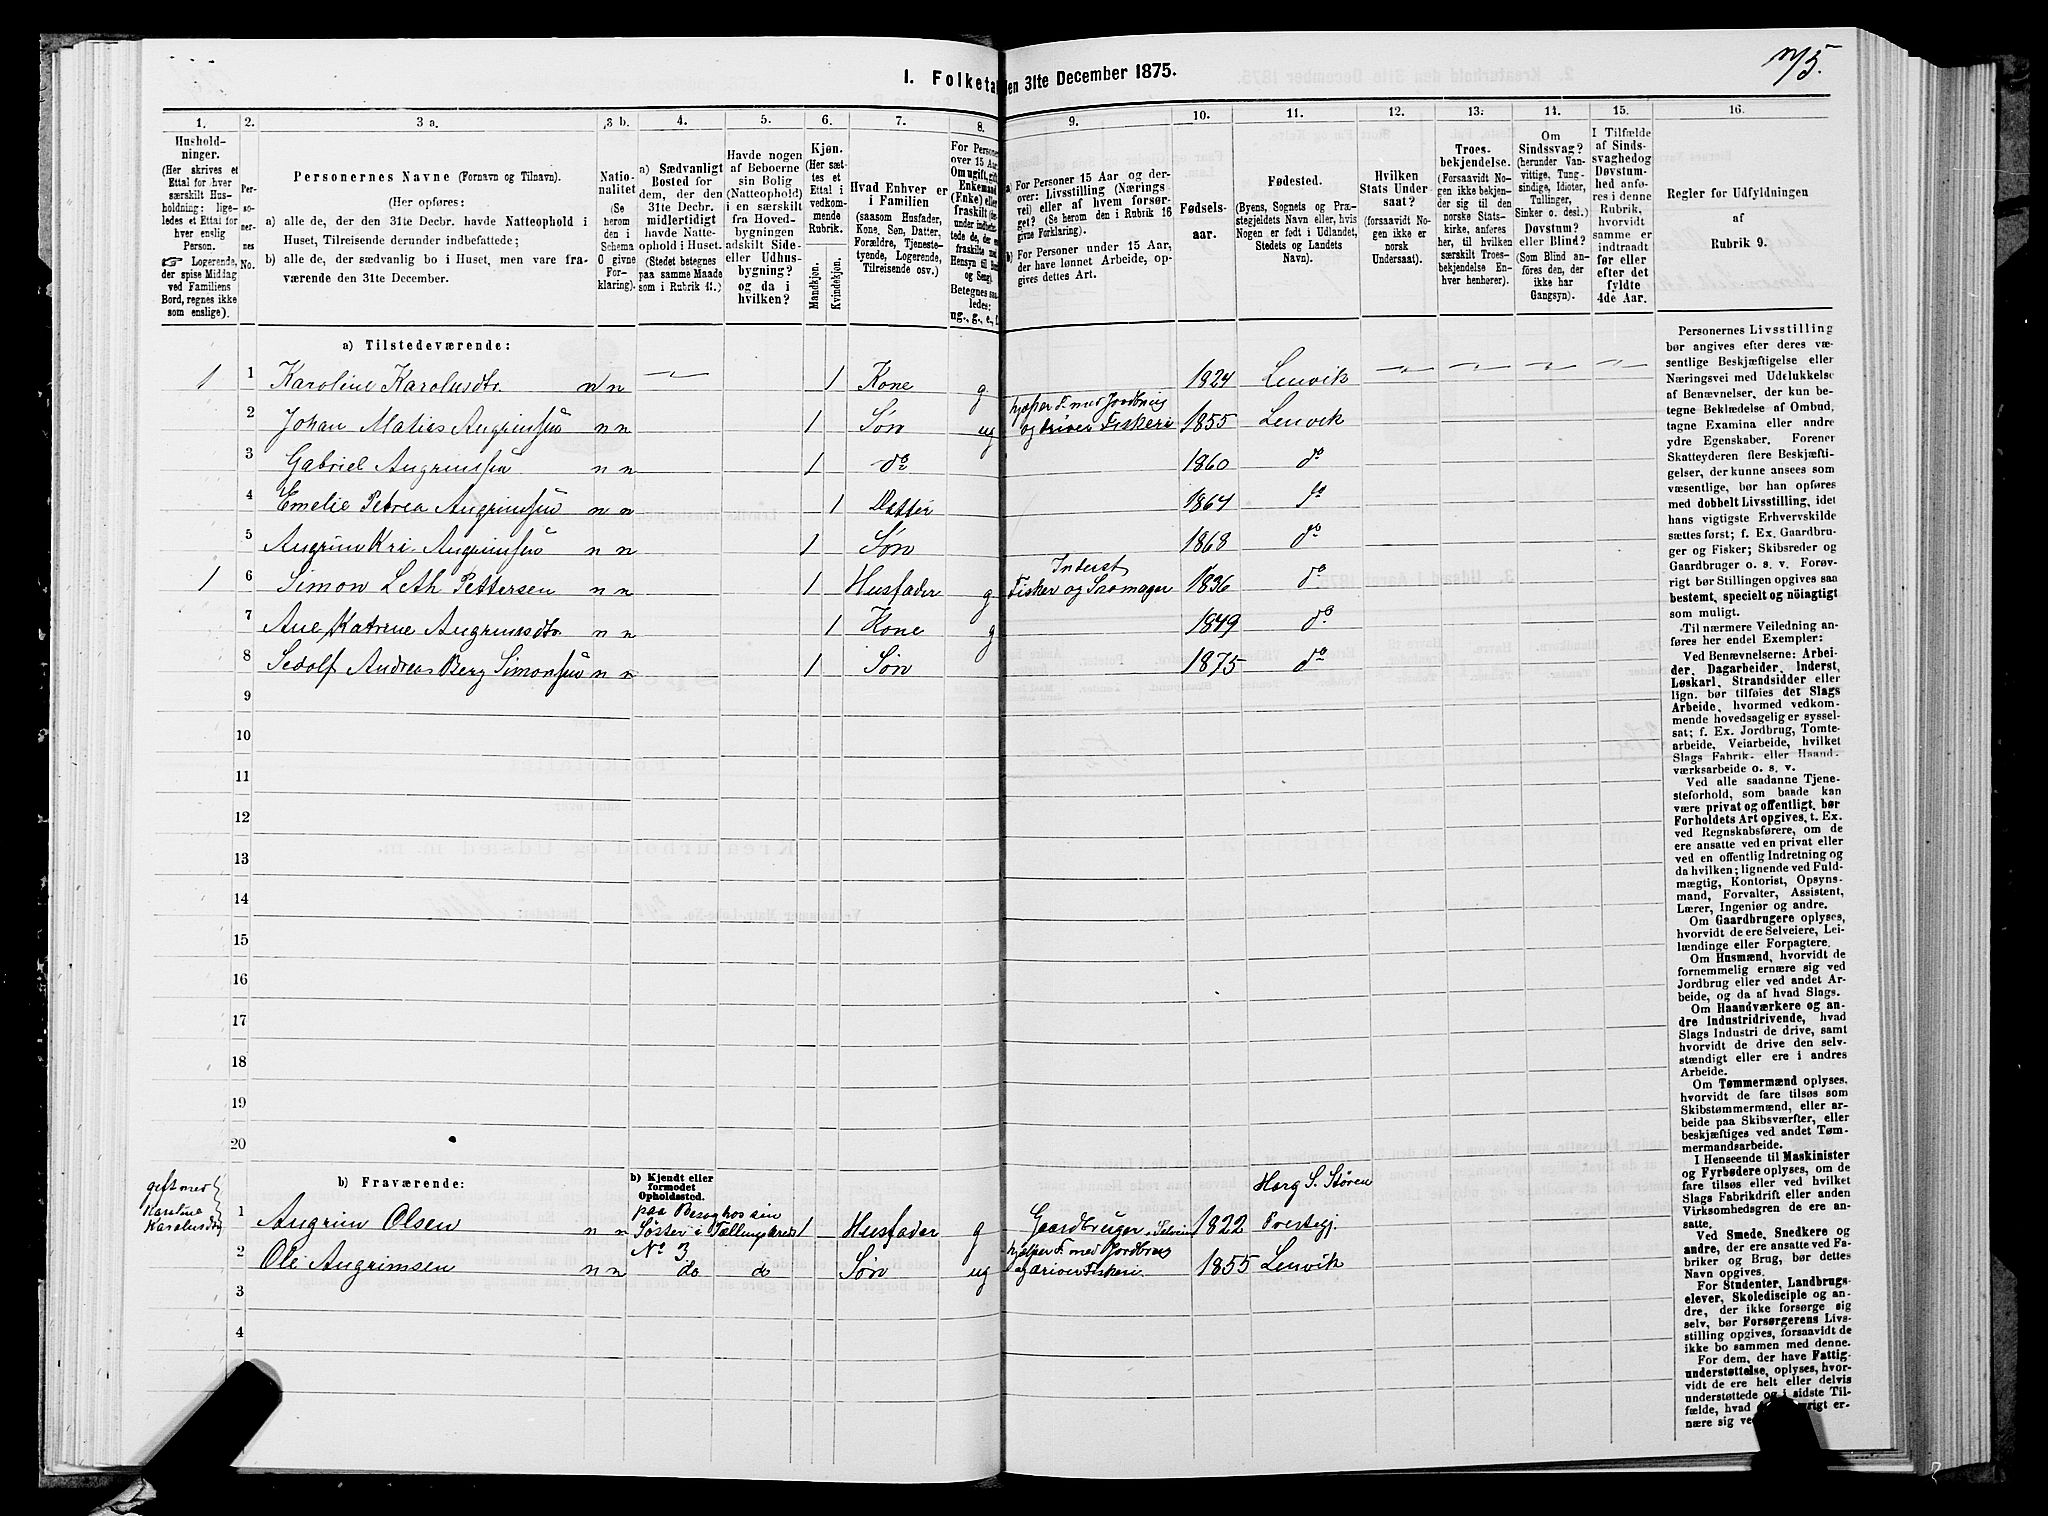 1. Folketal den 31te December 1875.
1. 2. 3 a. 3 b. 4. 5. 6. 7. 8. 9. 10. 11. 12. 13. 14. 15. 16.
Hushold-
ninger.
(Her skrives et
Ettal for hver
særskilt Hus-
holdning: lige-
ledes et Ettal for
hver enslig
Person.
☞ Logerende,
der spise Middag
ved Familiens
Bord, regnes ikke
som enslige).
Per-
so-
ner-
nes
No.
Personernes Navne (Fornavn og Tilnavn).
(Her opføres:
a) alle de, der den 31te Decbr. havde Natteophold i
Huset, Tilreisende derunder indbefattede;
b) alle de, der sædvanlig bo i Huset, men vare fra-
værende den 31te December.
Natio-
nalitet
(Se
herom
den i
Schema
C givne
For-
klaring).
a) Sædvanligt
Bosted for
dem, der den
31te Decbr.
midlertidigt
havde Natte-
ophold i Huset.
(Stedet betegnes
paa samme Maade
som i Rubrik 11.)
Havde nogen
af Beboerne
sin Bolig
(Natteophold)
i en særskilt
fra Hoved-
bygningen
adskilt Side-
eller Udhus-
bygning?
og da i
hvilken?
Kjøn.
(Her sæt-
tes et
Ettal i
vedkom-
mende
Rubrik.
Mandkjøn.
Kvindekjøn.
Hvad Enhver er
i Familien
(saasom Husfader,
Kone, Søn, Datter,
Forældre, Tjeneste-
tyende, Logerende,
Tilreisende osv.)
For Personer
over 15 Aar:
Om ugift, gift,
Enkemand
(Enke) eller
fraskilt
Betegnes saa-
ledes:
ug., g., e., f.
a) For Personer 15 Aar og der-
over: Livsstilling (Nærings-
vei) eller af hvem forsør-
get? (Se herom den i Rubrik 16
givne Forklaring).
b) For Personer under 15 Aar,
der have lønnet Arbeide, op-
gives dettes Art.
Fødsels-
aar.
Fødested.
(Byens, Sognets og Præ-
stegjeldets Navn eller, hvis
Nogen er født i Udlandet,
Stedets og Landets
Navn).
Hvilken
Stats Under-
saat?
(forsaavidt No-
gen ikke er
norsk
Undersaat).
Troes-
bekjendelse.
(Forsaavidt No-
gen ikke bekjen-
der sig til den
norske Stats-
kirke, anføres
her, til hvilken
særskilt Troes-
bekjendelse En-
hver henhører).
Om
Sindssvag?
(herunder Van-
vittige, Tung-
sindige, Idioter,
Tullinger,
Sinker o. desl.)
Døvstum?
eller Blind?
(Som Blind an-
føres den, der
ikke har
Gangsyn).
I Tilfælde
af Sinds-
svaghed og
Døvstum-
hed anfø-
res i denne
Rubrik,
hvorvidt
samme er
indtraadt
før eller
efter det
fyldte
4de Aar.
Regler for Udfyldningen
af
Rubrik 9.
a) Tilstedeværende:
1 1 Karoline Karolusdtr. n n 1 Kone g 1824 Lenvik
2 Johan Matias Angrimsen n n 1 Søn ug hjelper F. med Jordbrug og driver Fiskeri 1855 Lenvik
3 Gabriel Angrimsen n n 1 do 1860 do
4 Emelie Petrea Angrimsen n n 1 Datter 1864 do
5 Angrim Kri. Angrimsen n n 1 Søn 1868 do
1 6 Simon Leth Pettersen n n 1 Husfader g Inderst Fisker og Skomager 1836 do
7 Ane Katrine Angrimsdtr n n 1 Kone g 1849 do
8 Sedolf Andreas Berg Simonsen n n 1 Søn 1875 do
9
10
11
12
13
14
15
16
17
18
19
20
b) Fraværende:
b) Kjendt eller
formodet
Opholdssted.
gift med
Karoline
Karolusdtr
1 Angrim Olsen n n paa Besøg hos sin Søster i Tællingskreds No 3 1 Husfader g Gaardbruger, Selveier 1822 Horg S. Støren Prestegj.
2 Ole Angrimsen n n do do Søn ug hjelper F. med Jordbrug og driver Fiskeri 1855 Lenvik
3
4
Personernes Livsstilling
bør angives efter deres væ-
sentlige Beskjæftigelse eller
Næringsvei med Udelukkelse
af Benævnelser, der kun be-
tegne Beklædelse af Ombud,
tagne Examina eller andre
ydre Egenskaber. Forener
Skatteyderen flere Beskjæfti-
gelser, der kunne ansees som
væsentlige, bør han opføres
med dobbelt Livsstilling, idet
hans vigtigste Erhvervskilde
sættes først; f. Ex. Gaardbru-
ger og Fisker; Skibsreder og
Gaardbruger o. s. v. Forøv-
rigt bør Stillingen opgives saa
bestemt, specielt og nöiagtigt
som muligt.
Til nærmere Veiledning an-
føres her endel Exempler:
Ved Benævnelserne: Arbei-
der, Dagarbeider, Inderst,
Løskarl, Strandsidder eller
lign. bør tilføies det Slags
Arbeide, hvormed vedkom-
mende hovedsagelig er syssel-
sat; f. Ex. Jordbrug, Tomte-
arbeide, Veiarbeide, hvilket
Slags Fabrik- eller Haand-
værksarbeide o. s. v.
Ved alle saadanne Tjene-
steforhold, som baade kan
være privat og offentligt, bør
Forholdets Art opgives, t. Ex.
ved Regnskabsførere, om de
ere ansatte ved en privat eller
ved en offentlig Indretning og
da hvilken; lignende ved Fuld-
mægtig, Kontorist, Opsyns-
mand, Forvalter, Assistent,
Lærer, Ingeniør og andre.
Om Gaardbrugere oplyses,
hvorvidt de ere Selveiere, Lei-
lændinge eller Forpagtere.
Om Husmænd, hvorvidt de
fornemmelig ernære sig ved
Jordbrug eller ved andet Ar-
beide, og da af hvad Slags.
Om Haandværkere og an-
dre Industridrivende, hvad
Slags Industri de drive, samt
hvorvidt de drive den selv-
stændigt eller ere i andres
Arbeide.
Om Tømmermænd oplyses,
hvorvidt de fare tilsøs som
Skibstømmermænd, eller ar-
beide paa Skibsværfter, eller
beskjæftiges ved andet Tøm-
mermandsarbeide.
I Henseende til Maskinister
og Fyrbødere oplyses, om de
fare tilsøs eller ved hvilket
Slags Fabrikdrift eller anden
Virksomhedsgren de ere an-
satte.
Ved Smede, Snedkere og
andre, der ere ansatte ved Fa-
briker og Brug, bør dettes
Navn opgives.
For Studenter, Landbrugs-
elever, Skoledisciple og an-
dre, der ikke forsørge sig
selv, bør Forsørgerens Livs-
stilling opgives, forsaavidt de
ikke bo sammen med denne.
For dem, der have Fattig-
understøttelse, oplyses, hvor-
vidt de ere helt eller delvis
understøttede og i sidste Til-
fælde, hvad